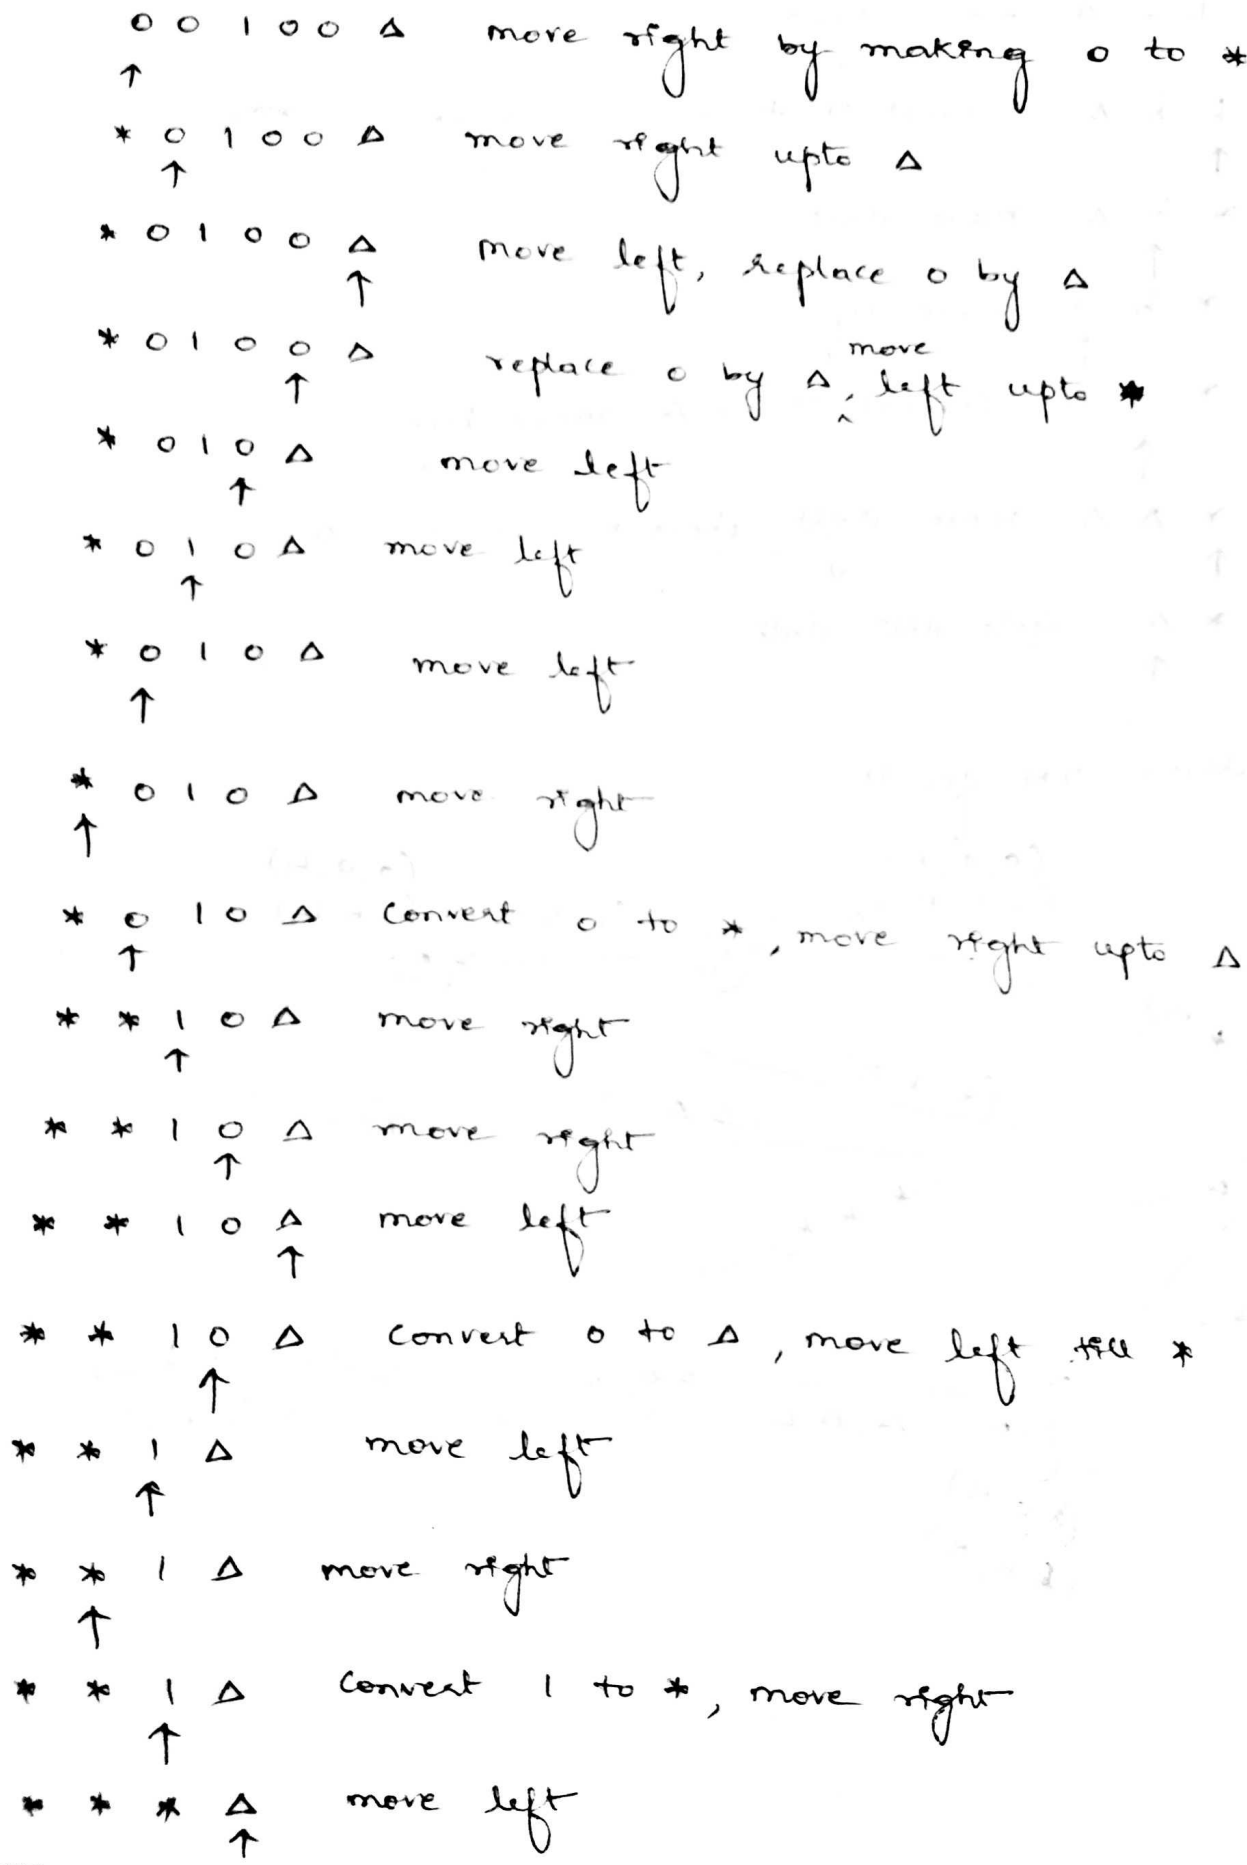 0 0 1 0 0 Δ move right by making 0 to *
↑
* 0 1 0 0 Δ move right upto Δ
↑
* 0 1 0 0 Δ move left, replace 0 by Δ
↑
* 0 1 0 0 Δ replace 0 by Δ, move left upto *
↑
* 0 1 0 Δ move left
↑
* 0 1 0 Δ move left
↑
* 0 1 0 Δ move left
↑
* 0 1 0 Δ move right
↑
* 0 1 0 Δ Convert 0 to *, move right upto Δ
↑
* * 1 0 Δ move right
↑
* * 1 0 Δ move right
↑
* * 1 0 Δ move left
↑
* * 1 0 Δ Convert 0 to Δ, move left till *
↑
* * 1 Δ move left
↑
* * 1 Δ move right
↑
* * 1 Δ Convert 1 to *, move right
↑
* * * Δ move left
↑